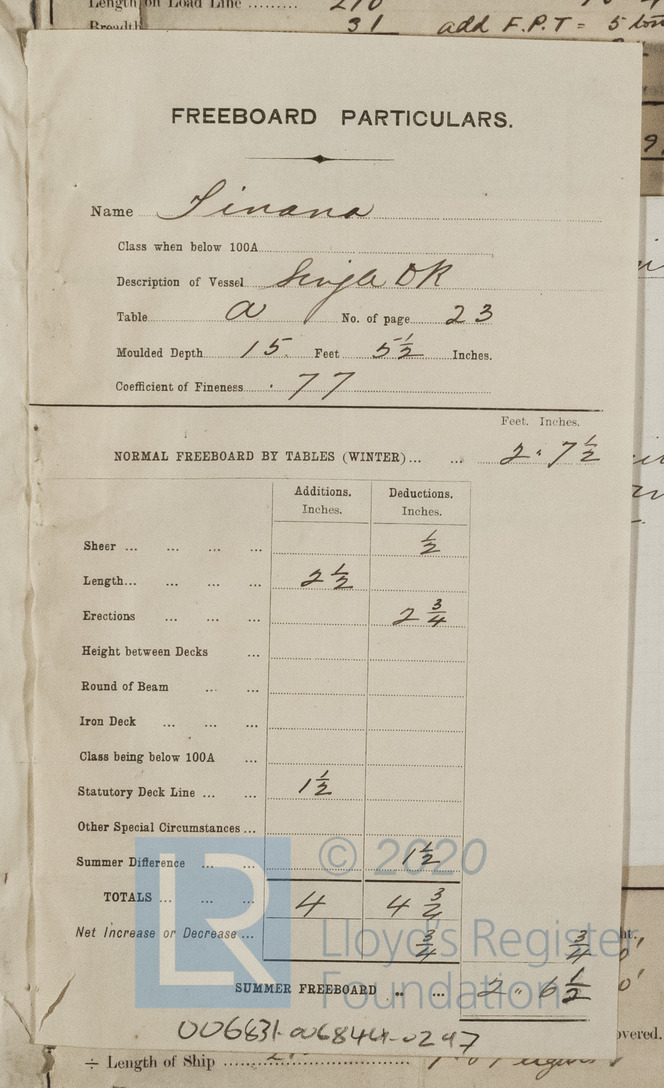 Length on Load Line ......... 210
Breadth 31 add F.P.T = 5 tons
FREEBOARD PARTICULARS.
Name Tinana
Class when below 100A
Description of Vessel Single DK
Table a No. of page 23
Moulded Depth 15 Feet 5½ Inches.
Coefficient of Fineness .77
Feet. Inches.
NORMAL FREEBOARD BY TABLES (WINTER)... ... 2 " 7½
Additions. Deductions.
Inches. Inches.
Sheer ... ... ... ... ½
Length... ... ... ... 2½
Erections ... ... ... 2¾
Height between Decks ...
Round of Beam ... ...
Iron Deck ... ... ...
Class being below 100A ...
Statutory Deck Line ... ... 1½
Other Special Circumstances ...
Summer Difference ... ... 1½
TOTALS ... ... ... 4 4¾
Net Increase or Decrease ... ¾ ¾
SUMMER FREEBOARD .. ... 2 " 6½
006831-006844-0247
÷ Length of Ship
overed.
LR
© 2020
Lloyd's Register
Foundation